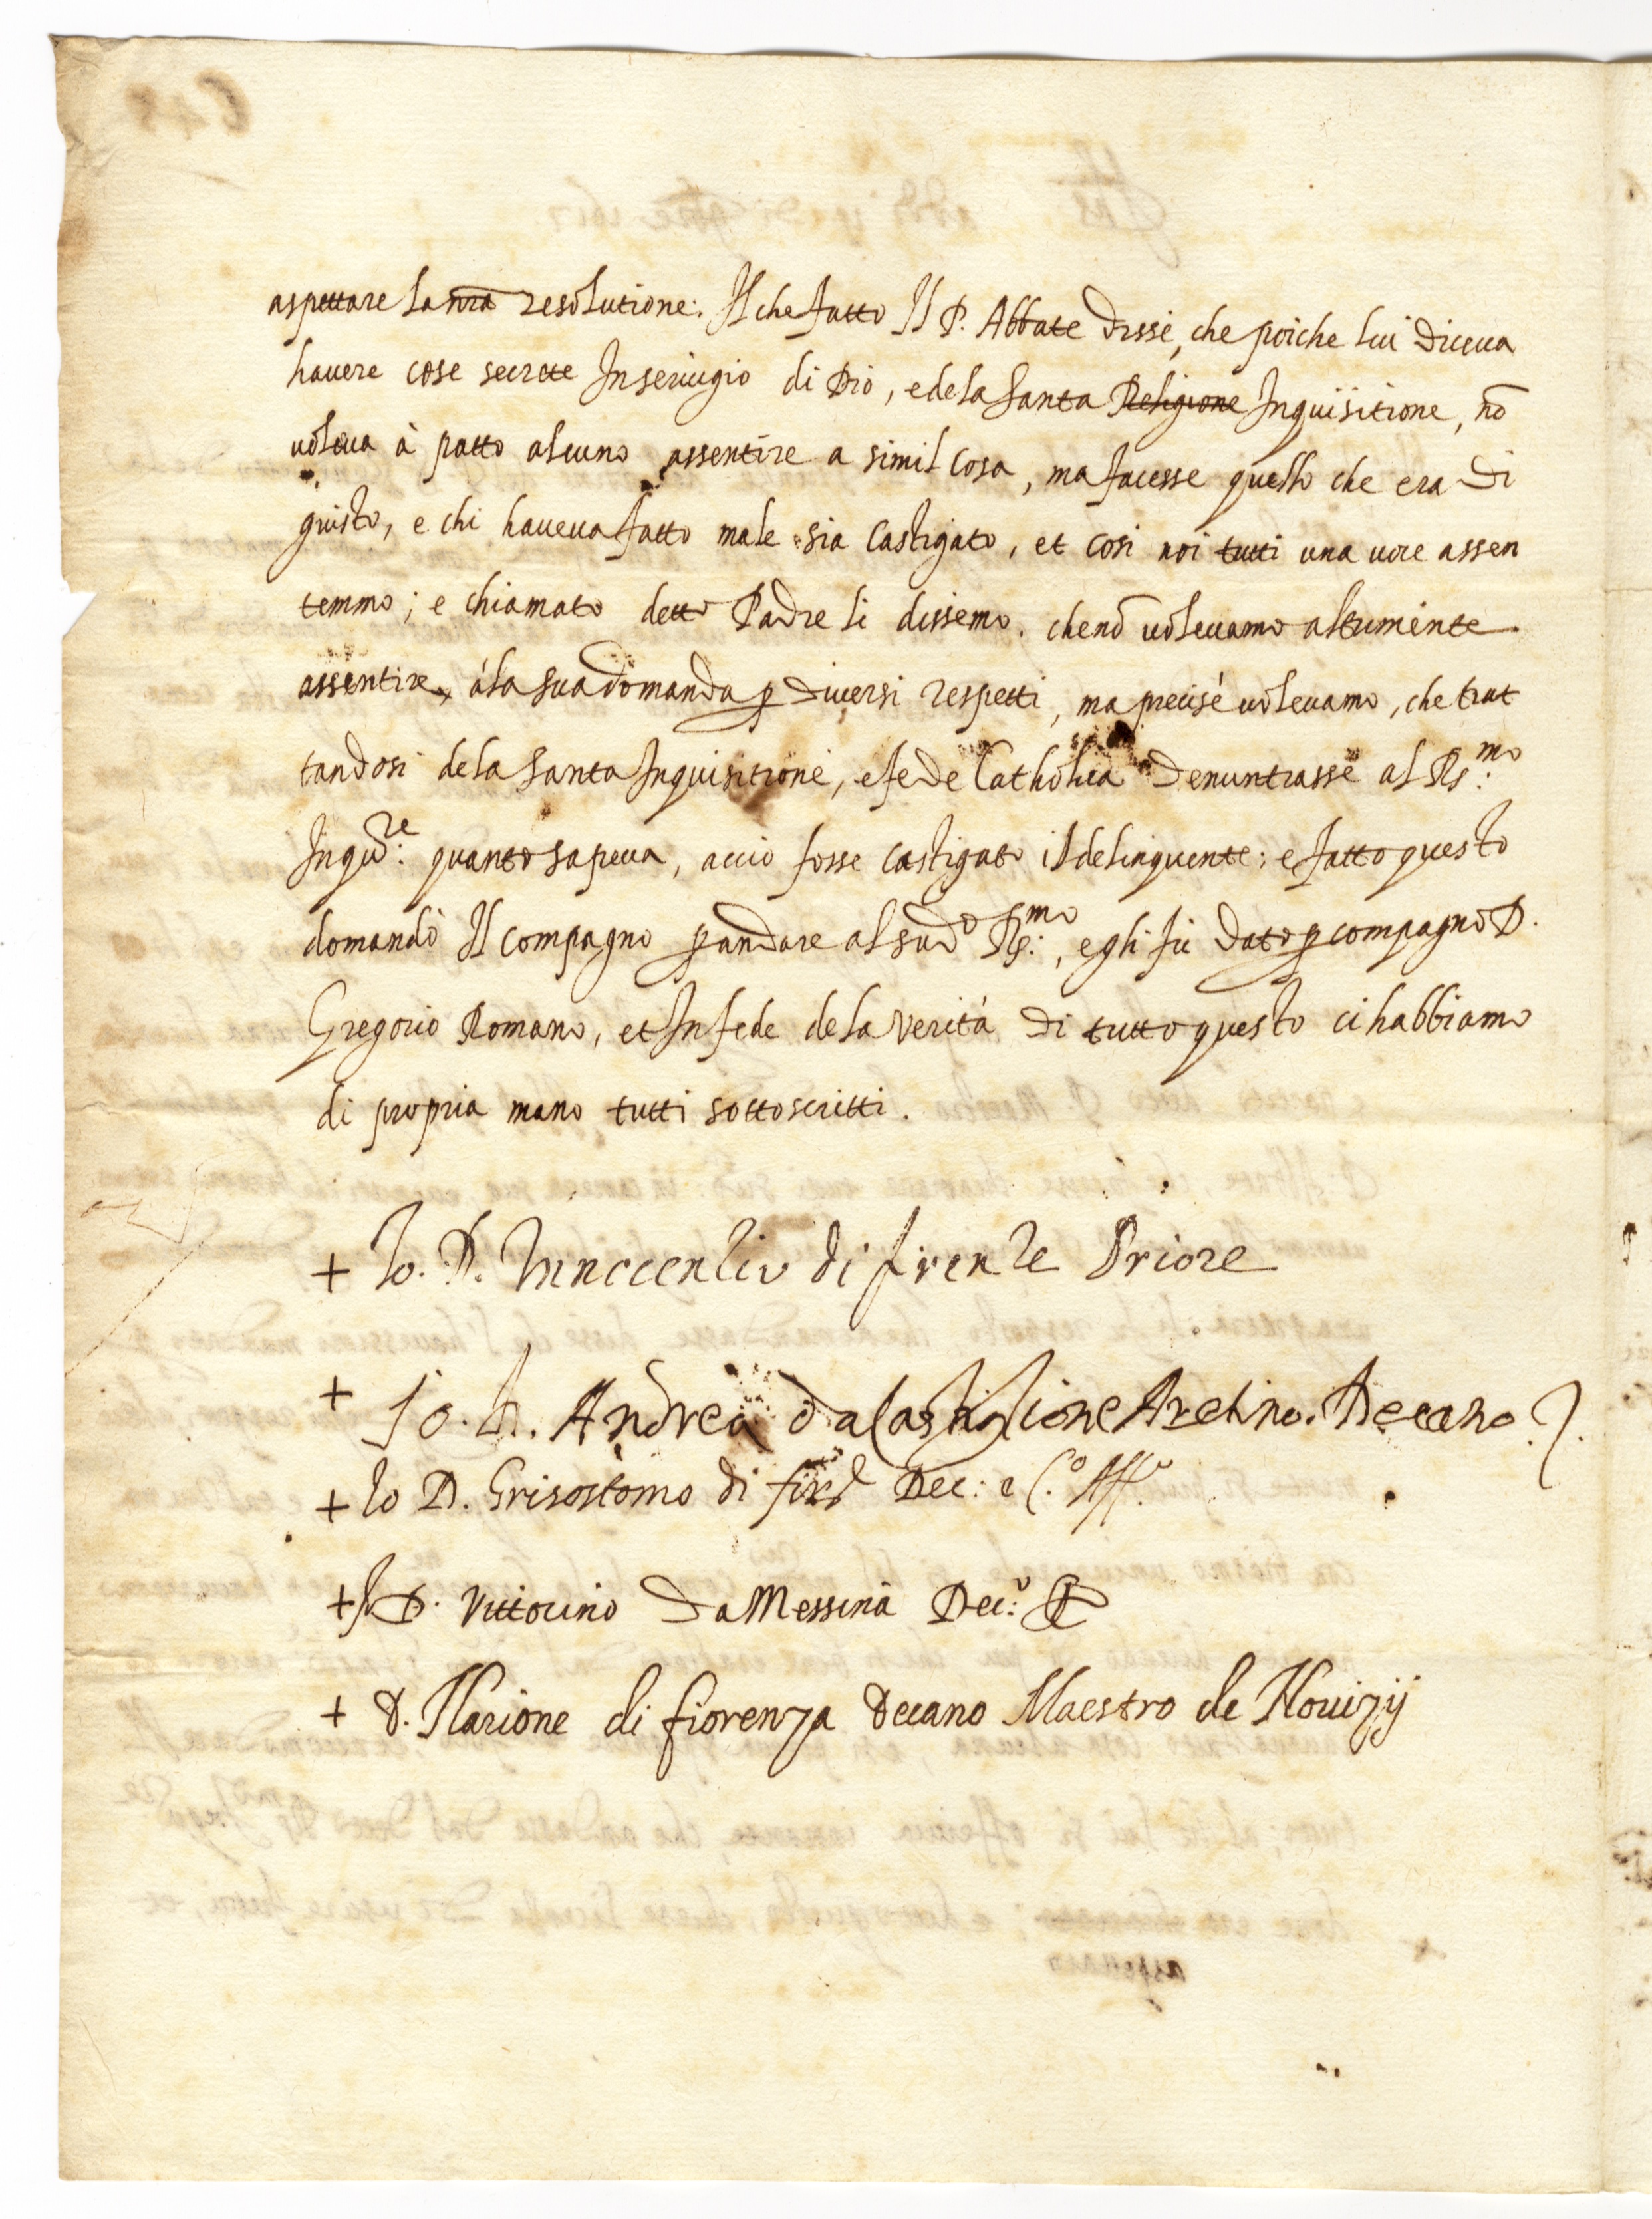 aspettare la nrã resolutione. Il che fatto Il P. Abbate disse, che poiche lui diceua
hauere cose secrete In seruigio di Dio, e de la Santa Religione Inquisitione, nõ
uoleua à patto alcuno assentire a simil cosa, ma facesse quello che era di
giusto, e chi haueua fatto male sia Castigato, et cosi noi tutti una uoce assen
temmo; e chiamato detto Padre li dissemo. che nõ uoleuamo altrimente
assentire à la sua domanda p diuersi respetti, ma precisè uoleuamo, che trat
tandosi de la Santa Inquisitione, e fede Catholica denuntiasse al Rs.mo
Inqu.re quanto sapeua, accio fosse castigato il delinquente; e fatto questo
domandò Il compagno p andare al sudo Rs.mo, e gli fù dato p compagno D.
Gregorio Romano, et In fede de la verità di tutto questo ci habbiamo
di propria mano tutti sottoscritti.
+ Io. D. Innocentio di firenze Priore
+ Io. D. Andrea da Castiglione Aretino. Decano
+ Io D. Grisostomo di Dec:
+ D. Vittorino da Messina Dec.o
+ D. Ilarione di fiorenza Decano Maestro de Nouizij